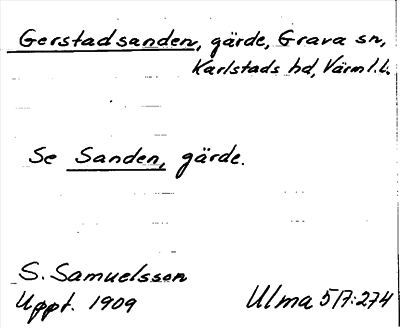 Gerstadsanden, gärde, Grava sn,
Karlstads hd, Värml.l.
Se Sanden, gärde.
S. Samuelsson
Uppt. 1909
Ulma 517:274